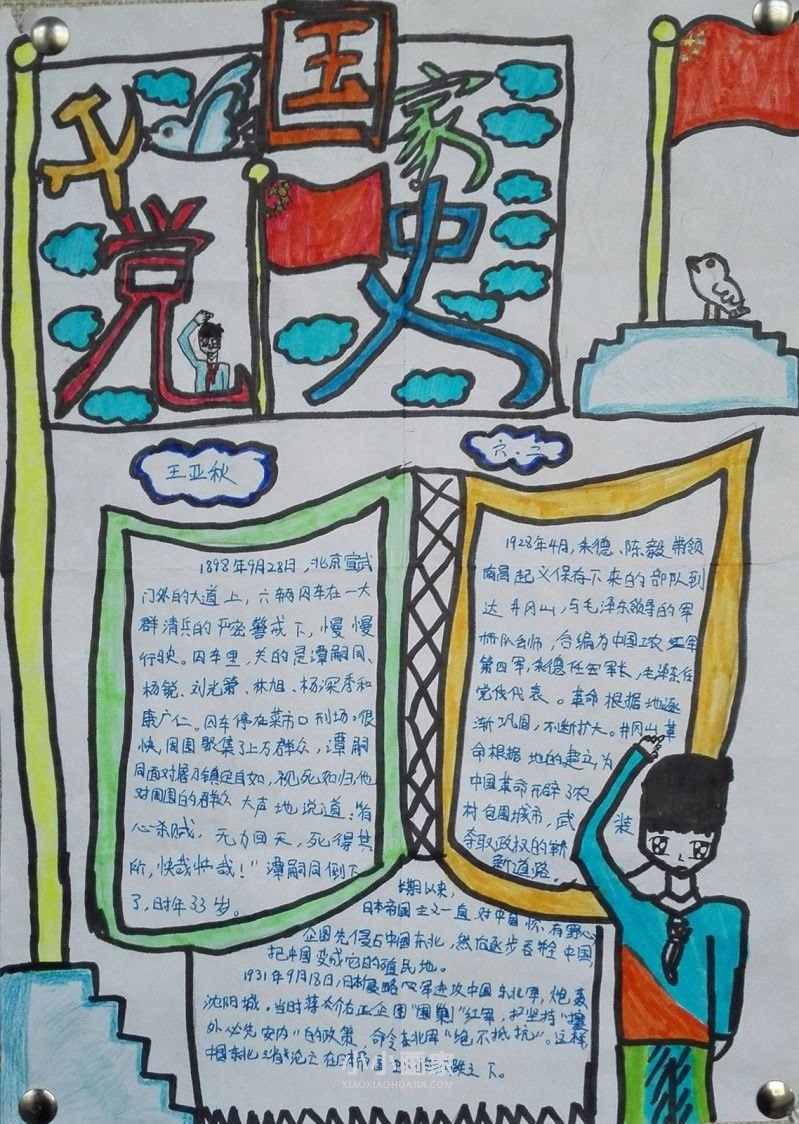 国家
党史
王亚秋
六.二
1898年9月28日,北京宣武
门外的大道上,六辆囚车在一大
群清兵的严密警戒下,慢慢
行驶。囚车里,关的是谭嗣同、
杨锐、刘光第、林旭、杨深秀和
康广仁。囚车停在菜市口刑场。很
快,周围聚集了上万群众,谭嗣
同面对屠刀镇定自如,视死如归,他
对周围的群众大声地说道:"有
心杀贼,无力回天,死得其
所,快哉快哉!"谭嗣同倒下
了,时年33岁。
1928年4月,朱德、陈毅带领
南昌起义保存下来的部队到
达井冈山,与毛泽东领导的军
队会师,合编为中国工农红军
第四军,朱德任军长,毛泽东任
党代表。革命根据地逐
渐巩固,不断扩大。井冈山革
命根据地的建立,为
中国革命开辟了农
村包围城市,武装
夺取政权的新
新道路。
长期以来,
日本帝国主义一直对中国怀有野心
企图先侵占中国东北,然后逐步吞牷中国,
把中国变成它的殖民地。
1931年9月18日,日本侵略军进攻中国东北军,炮轰
沈阳城。当时蒋介石正企图"围剿"红军,把坚持"攘
外必先安内"的政策,命令东北军"绝不抵抗"。这样
国东北三省沦亡在日本之下。
小小画家
XIAOXIAOHUAJIA.COM